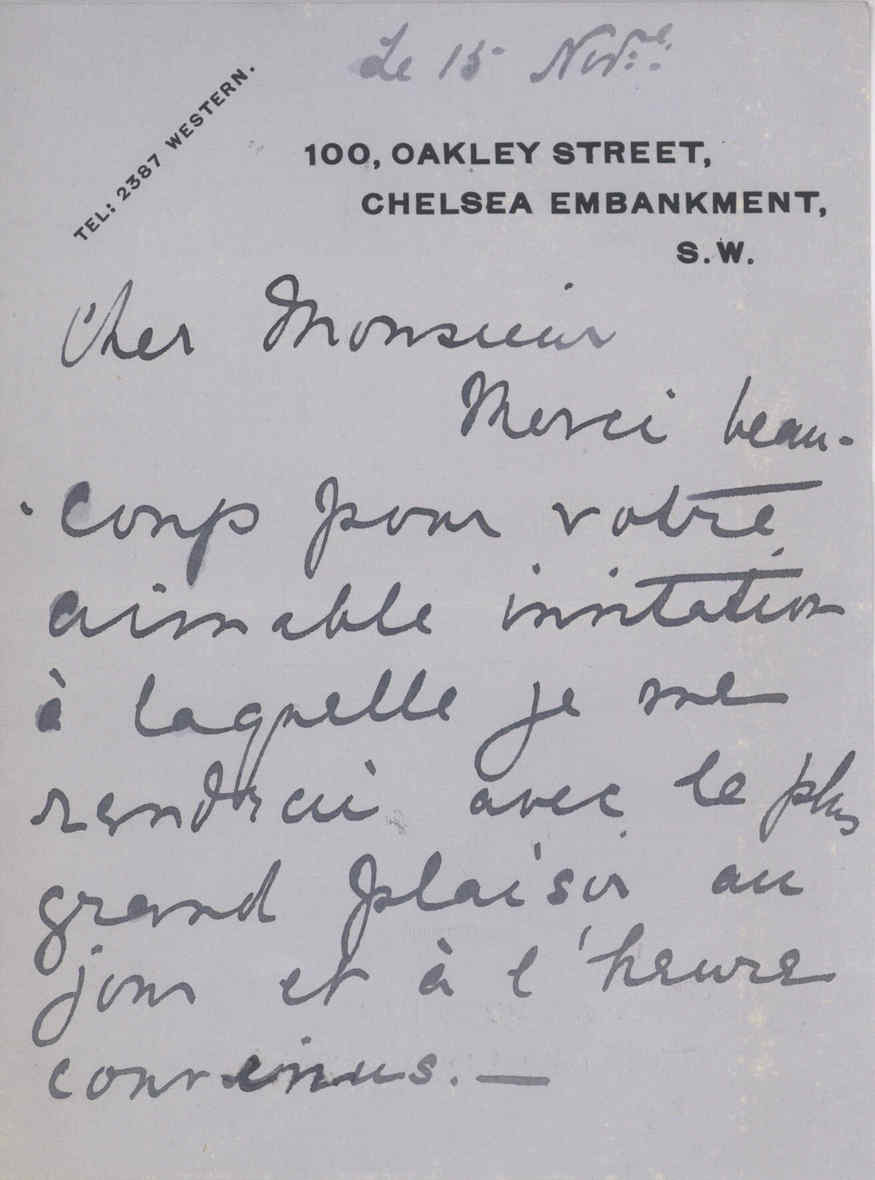 Le 15 Nov:re:
TEL: 2387 WESTERN.
100, OAKLEY STREET,
CHELSEA EMBANKMENT,
S.W.
Cher Monsieur
Merci beau-
-coup pour votre
aimable invitation
à laquelle je me
rendrai avec le plus
grand plaisir au
jour et à l'heure
convenus. —